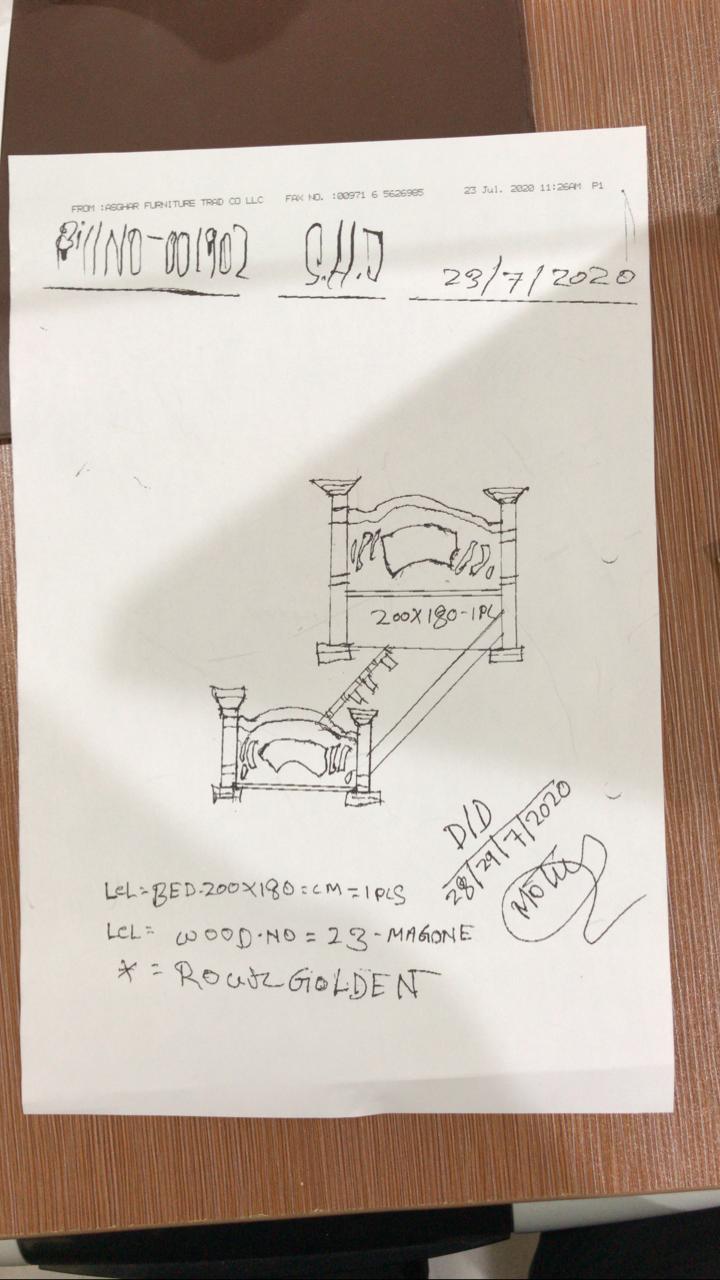 FROM :ASGHAR FURNITURE TRAD CO LLC FAX NO. :00971 6 5626985 23 Jul. 2020 11:26AM P1
Bill NO-001902 S.H.J 23/7/2020
200X180-1PC
D/D
28/29/7/2020
LCL=BED.200X180=CM=1PCS
LCL= WOOD.NO=23-MAGONE
*= GOLDEN